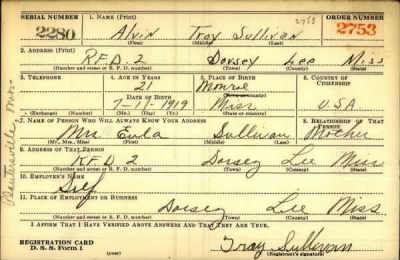 SERIAL NUMBER 1. NAME (Print) ORDER NUMBER
2280 Alvin Troy Sullivan 2753 2753
(First) (Middle) (Last)
2. ADDRESS (Print)
R.F.D. 2 Dorsey Lee Miss
(Number and street or R. F. D. number) (Town) (County) (State)
3. TELEPHONE 4. AGE IN YEARS 5. PLACE OF BIRTH 6. COUNTRY OF CITIZENSHIP
21 Monroe
DATE OF BIRTH (Town or county)
7-11-1919 Miss U.S.A
(Exchange) (Number) (Mo.) (Day) (Yr.) (State or country)
7. NAME OF PERSON WHO WILL ALWAYS KNOW YOUR ADDRESS 8. RELATIONSHIP OF THAT PERSON
Mrs Eula Sullivan Mother
(Mr., Mrs., Miss) (First) (Middle) (Last)
9. ADDRESS OF THAT PERSON
R.F.D 2 Dorsey Lee Miss
(Number and street or R. F. D. number) (Town) (County) (State)
10. EMPLOYER'S NAME
Self
11. PLACE OF EMPLOYMENT OR BUSINESS
Dorsey Lee Miss
(Number and street or R. F. D. number) (Town) (County) (State)
I AFFIRM THAT I HAVE VERIFIED ABOVE ANSWERS AND THAT THEY ARE TRUE.
REGISTRATION CARD
D. S. S. Form 1 Troy Sullivan
(Registrant's signature)
Plantersville Miss